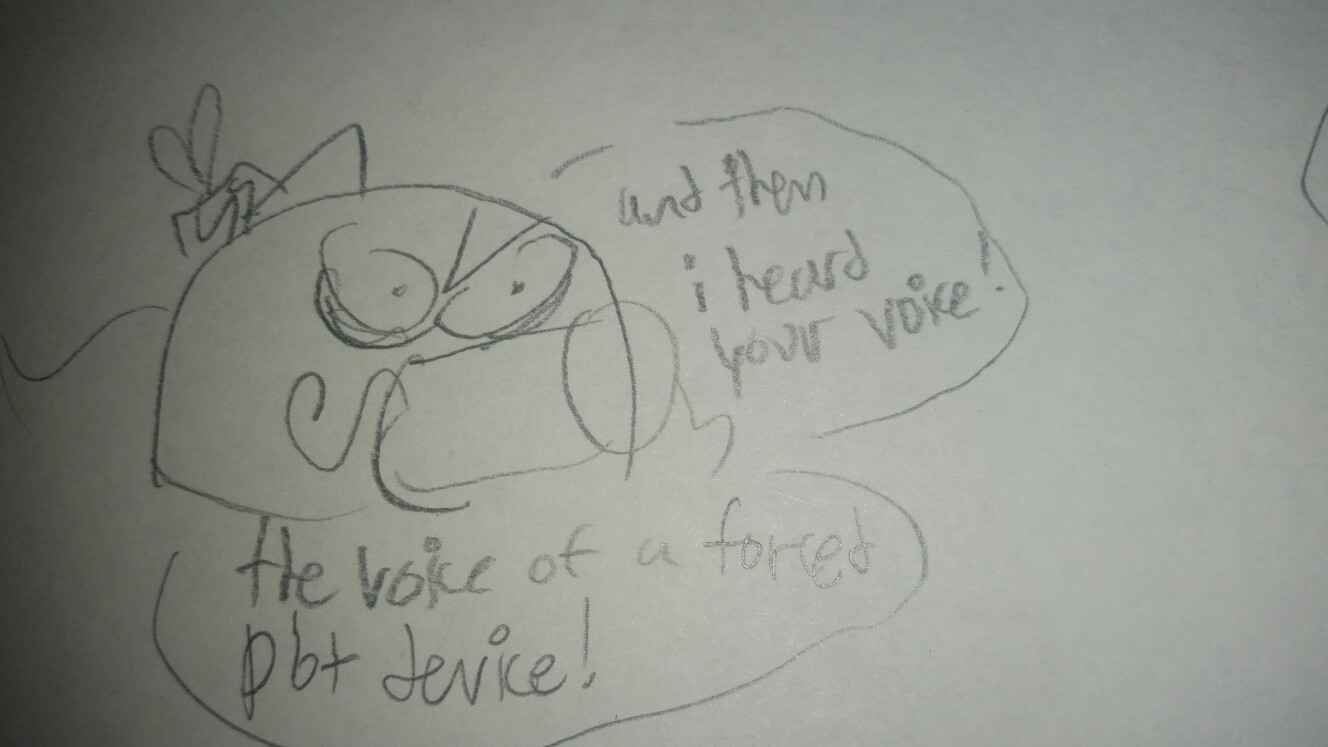 and then
i heard
your voice!
the voice of a forced
pbt device!